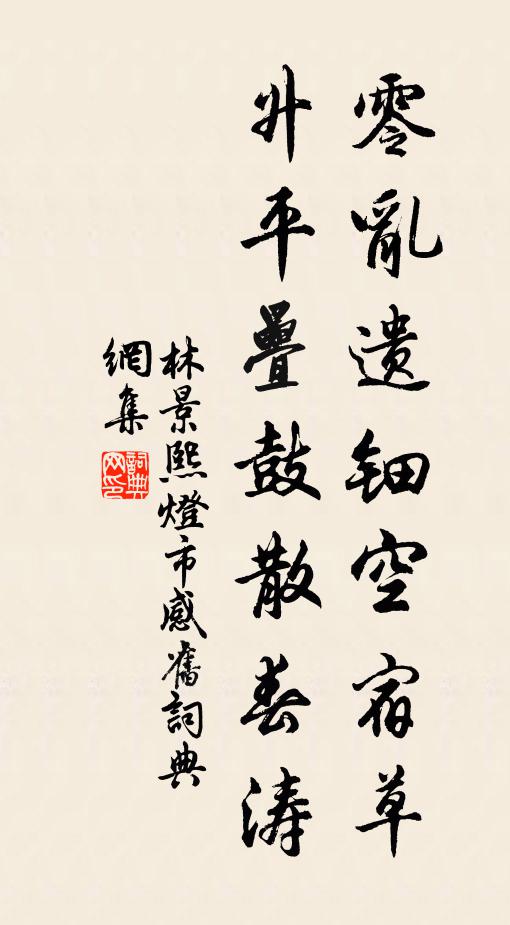 零亂遗鈿空宿草
升平疊鼓散春涛
林景熙燈市感舊詞典
網集
詞典网印